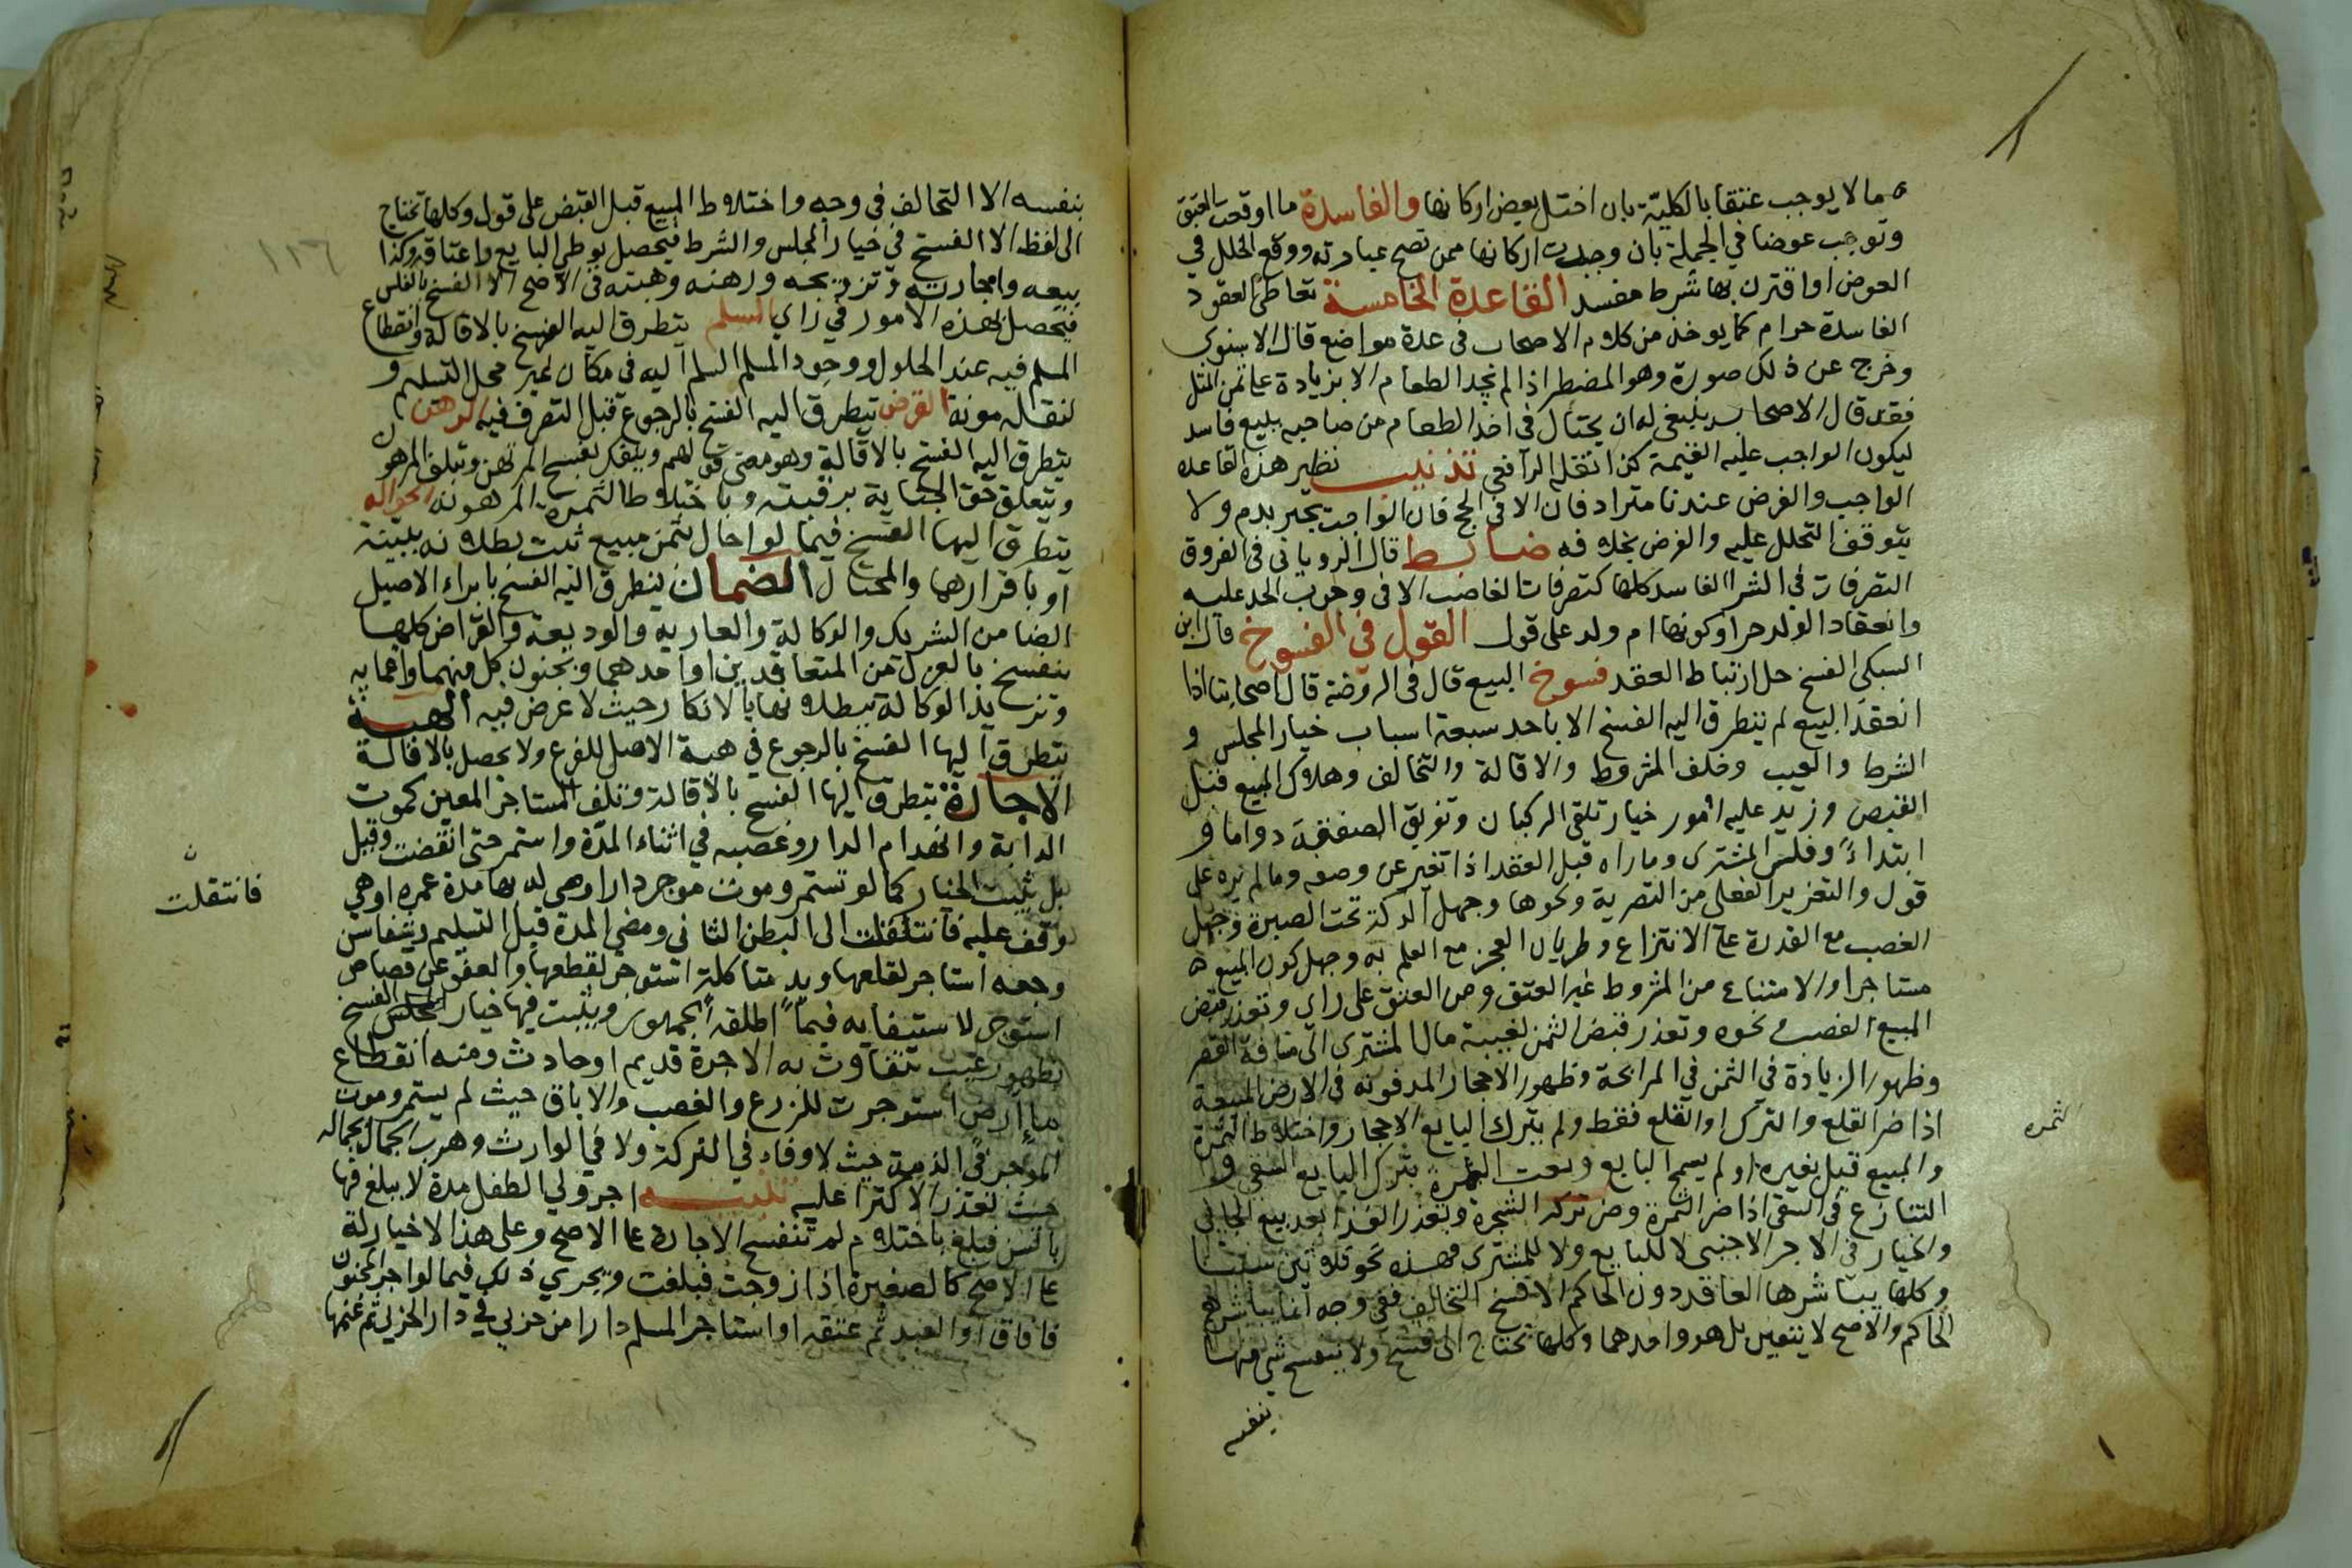 ما لا يوجب عتقا بالكلية بان اختل بعض اركانها والفاسدة ما اوقعت العتق
وتوجب عوضا في الجملة بان وجدت اركانها ممن تصح عبارته ووقع الخلل في
العوض او اقترن بها شرط مفسد القاعدة الخامسة تعاطي العقود
الفاسدة حرام كما يوخذ من كلام الاصحاب في عدة مواضع قال الاسنوي
وخرج عن ذلك صورة وهو المضطر اذا لم يجد الطعام الا بزيادة على ثمن المثل
فقد قال الاصحاب ينبغي له ان يحتال في اخذ الطعام من صاحبه ببيع فاسد
ليكون الواجب عليه القيمة كذا نقله الرافعي تذنيب نظير هذه القاعدة
الواجب والفرض عندنا مترادفان الا في الحج فان الواجب يجبر بدم ولا
يتوقف التحلل عليه والفرض بخلافه ضابط قال الروياني في الفروق
التصرفات في الشرا الفاسد كلها كتصرفات الغاصب الا في وجوب الحد عليه
وانعقاد الولد حرا وكونها ام ولد على قول القول في الفسوخ قال ابن
السبكي الفسخ حل ارتباط العقد فسوخ البيع قال في الروضة قال اصحابنا اذا
انعقد البيع لم يتطرق اليه الفسخ الا باحد سبعة اسباب خيار المجلس و
الشرط والعيب وخلف المشروط والاقالة والتحالف وهلاك المبيع قبل
القبض وزيد عليه امور خيار تلقي الركبان وتفريق الصفقة دواما و
ابتداءً وفلس المشتري وما راه قبل العقد اذا تغير عن وصفه وما لم يره على
قول والتغرير الفعلي من التصرية ونحوها وجهل الدكة تحت الصبرة وجهل
الغصب مع القدرة على الانتزاع وطريان العجز مع العلم به وجهل كون المبيع
مستاجرا والامتناع من المشروط غير العتق ومن العتق على راي وتعذر قبض
المبيع لغصب ونحوه وتعذر قبض الثمن لغيبة مال المشتري الى مسافة القصر
وظهور الزيادة في الثمن في المرابحة وظهور الاحجار المدفونة في الارض المبيعة
اذا ضر القلع والترك او القلع فقط ولم يترك البايع الاحجار واختلاط الثمرة
والمبيع قبل بغيره او لم يسمح البايع وبعيب الثمرة بترك البايع السقي و
التنازع في السقي اذا ضر الثمرة وضر تركه الشجرة وتعذر الفدا بعد بيع الجاني
والخيار في الاجر الاجنبي لا للبايع ولا للمشتري فهذه نحو ثلاثين سببا
وكلها يباشرها العاقد دون الحاكم الا فسخ التحالف ففي وجه انما يباشره
الحاكم والاصح لا يتعين بل هو او احدهما وكلها تحتاج الى فسخ ولا ينفسخ شي منها
بنفسه
الثمره
بنفسه الا التحالف في وجه واختلاط المبيع قبل القبض على قول وكلها تحتاج
الى لفظ الا الفسخ في خيار المجلس والشرط فيحصل بوطي البايع واعتاقه وكذا
بيعه واجارته وتزويجه ورهنه وهبته في الاصح الا الفسخ بالفلس
فيحصل بهذه الامور في راي السلم يتطرق اليه الفسخ بالاقالة وانقطاع
المسلم فيه عند الحلول ووجود المسلم المسلم اليه في مكان غير محل التسليم و
لنقله مونة القرض يتطرق اليه الفسخ بالرجوع قبل التصرف فيه الرهن
يتطرق اليه الفسخ بالاقالة وهو معنى قولهم وينفك بفسخ المرتهن وبتلف المرهون
وبتعلق حق الجناية برقبته وباختلاط الثمرة المرهونة الحوالة
يتطرق اليها الفسخ فيما لو احال بثمن مبيع ثبت بطلانه ببينة
او باقرارهما والمحتال الضمان يتطرق اليه الفسخ بابراء الاصيل
الضامن الشريك والوكالة والعارية والوديعة والقراض كلها
ينفسخ بالعزل من المتعاقدين او احدهما وبجنون كل منهما واغمايه
وتزيد الوكالة ببطلانها بالانكار حيث لا غرض فيه الهبة
يتطرق اليها الفسخ بالرجوع في هبة الاصل للفرع ولا يحصل بالاقالة
الاجارة يتطرق اليها الفسخ بالاقالة وتلف المستاجر المعين كموت
الدابة وانهدام الدار وغصبه في اثناء المدة واستمر حتى انقضت وقيل
بل يثبت الخيار كما لو لم تستمر وموت موجر دار اوصي له بها مدة عمره او هي
وقف عليه فانتقلت الى البطن الثاني ومضي المدة قبل التسليم
وجعه استاجر لقلعها ويد متاكلة استوجر لقطعها والعفو عن قصاص
استوجر لاستيفايه فيما اطلقه الجمهور ويثبت فيها خيار المجلس الفسخ
بظهور عيب تتفاوت به الاجرة قديم او حادث ومنه انقطاع
ماء ارض استوجرت للزرع والغصب والاباق حيث لم يستمر وموت
الموجر في الذمة حيث لا وفاء في التركة ولا في الوارث وهرب الجمال بجماله
حيث تعذر الاكترا عليه تنبيه اجر ولي الطفل مدة لا يبلغ فيها
بالسن فبلغ باحتلام لم تنفسخ الاجارة على الاصح وعلى هذا لا خيار له
على الاصح كالصغيرة اذا زوجت فبلغت ويجري ذلك فيما لو اجر المجنون
فافاق او العبد ثم عتقه او استاجر المسلم دارا من حربي في دار الحرب ثم غنمها
١٢٦
فانتقلت